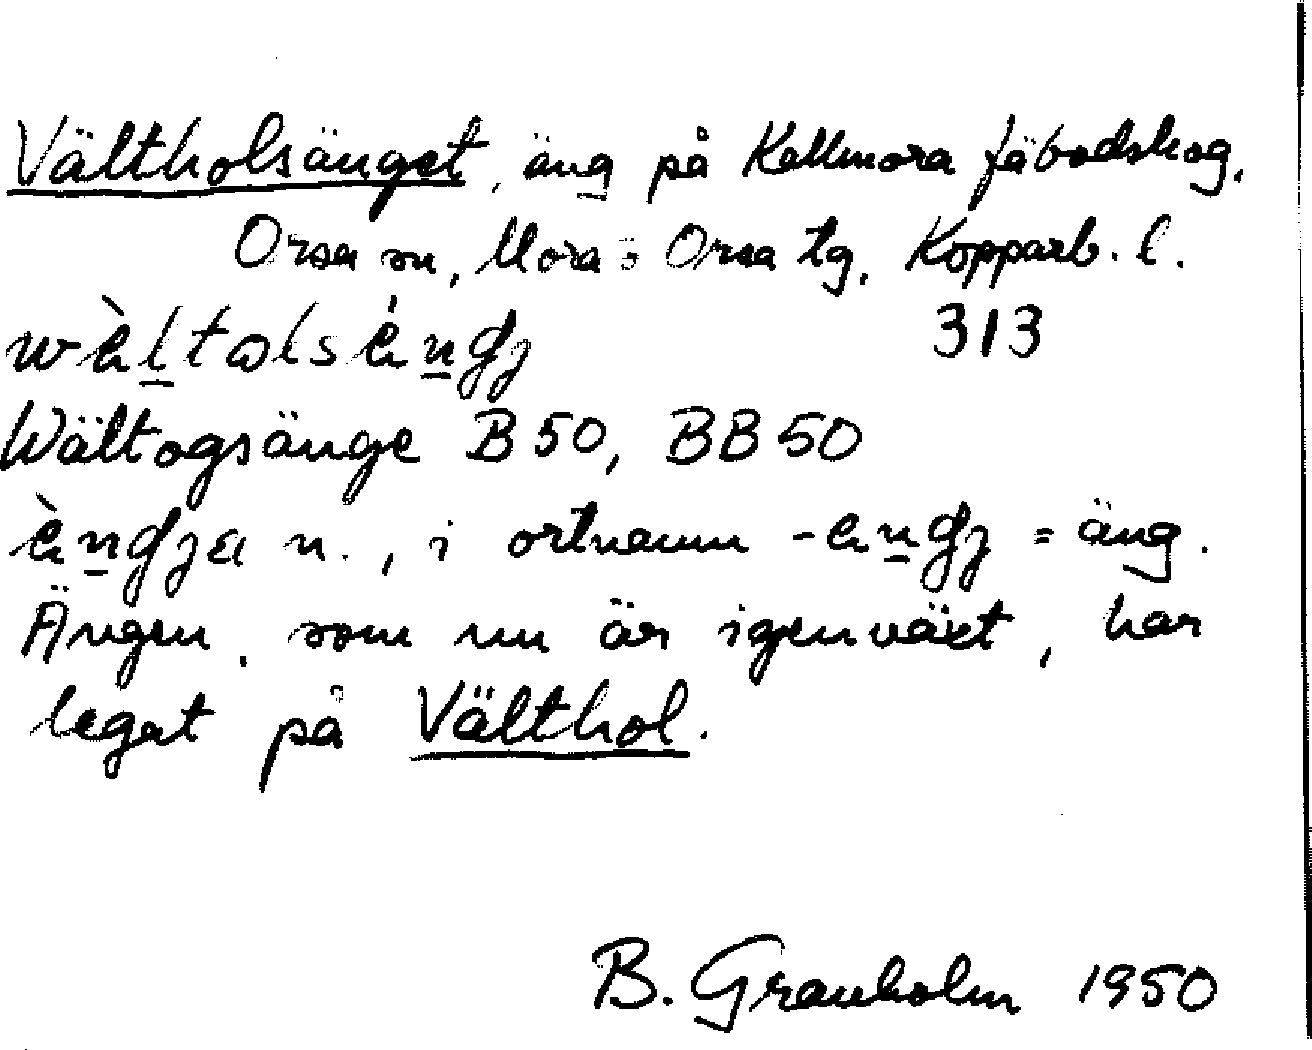 Vältholsänget, äng på Kallmora fäbodskog,
Orsa sn, Mora o Orsa tg, Kopparb. l.
wæ̀l̲tωlsæ̀n̲dʒ 313
Wältogsänge B 50, BB 50
æ̀n̲dʒa n., i ortnamn -æn̲dʒ = äng.
Ängen, som nu är igenväxt, har
legat på Välthol.
B. Granholm 1950